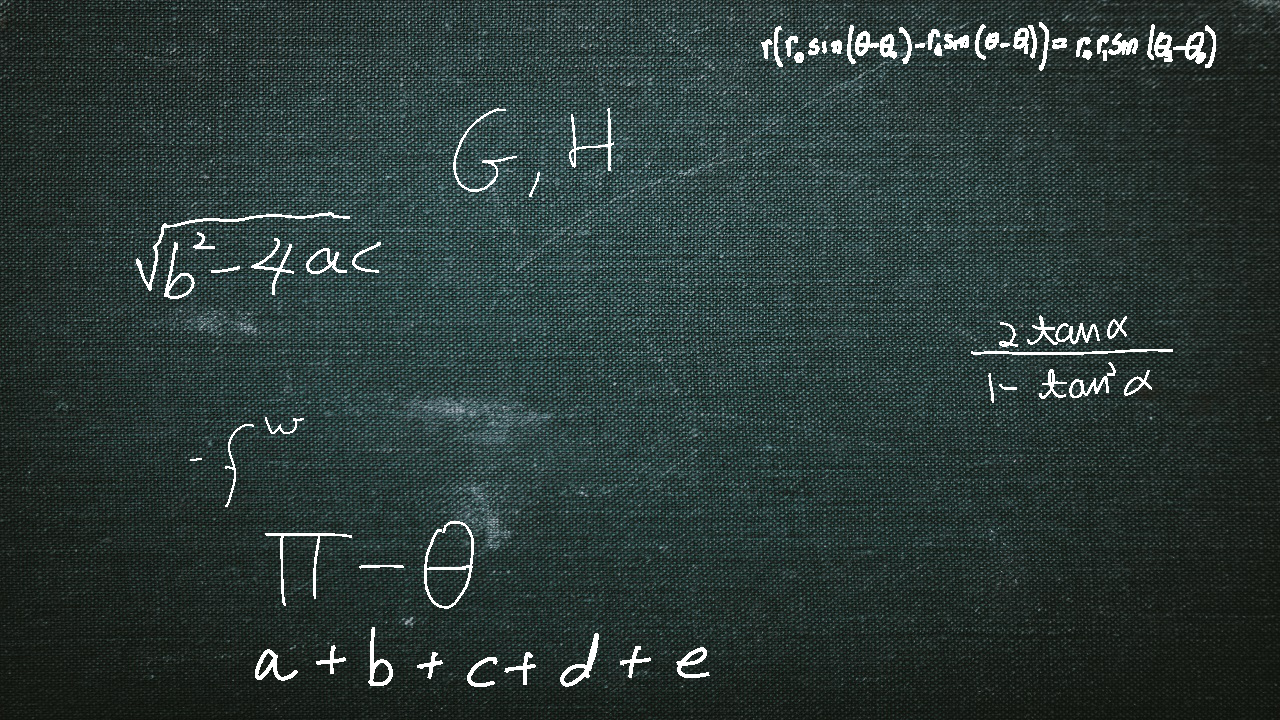 r(r₀sin(θ-θ₀)-r₁sin(θ-θ₁))=r₀r₁sin(θ₁-θ₀)
G, H
√(b²-4ac)
2 tan α / 1 - tan² α
-∫^w
π - θ
a + b + c + d + e